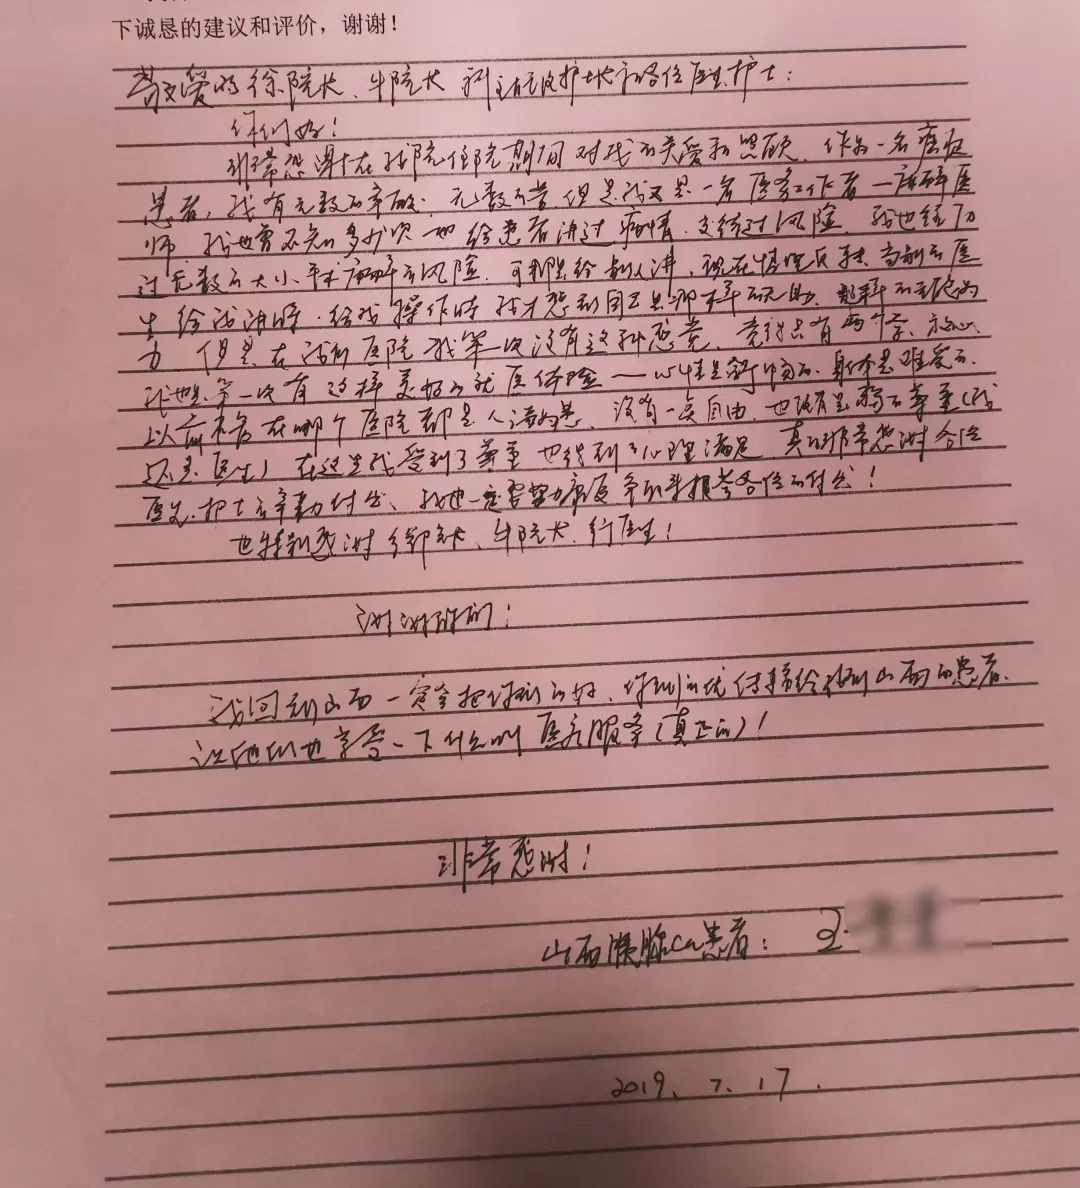 下诚恳的建议和评价，谢谢！
敬爱的徐院长、牛院长 护士长和各位医生护士：
你们好！
非常感谢在我院住院期间对我的关爱和照顾，作为一名癌症
患者，我有无数的辛酸，无数的苦，但是我又是一名医务工作者—麻醉医
师，我也曾不知多少次也给患者讲过病情，交待过风险，我也经历
过无数的大小手术麻醉的风险，可那是给别人讲，现在情况反转，当别的医
生给我讲时，给我操作时我才感到自己是那样的无助，那样的
力 但是在 医院我第一次没有这种感觉，竟然只有两个字：放心，
我也是第一次有这样美好的就医体验——心情是舒畅的，身体是难受的，
以前不管在哪个医院都是人满为患，没有一点自由，也没有 尊重（我
还是医生）在这里我受到了尊重也得到了心理满足，真的非常感谢各位
医生、护士的辛勤付出、我也一定要努力 争取来报答各位的付出！
也特别感谢徐院长、牛院长、 医生！
谢谢你们！
我回到山西一定会把你们的好，你们的优 给我们山西的患者，
让他们也享受一下什么叫医疗服务（真正的）！
非常感谢！
山西胰腺ca患者：王
2019.7.17.